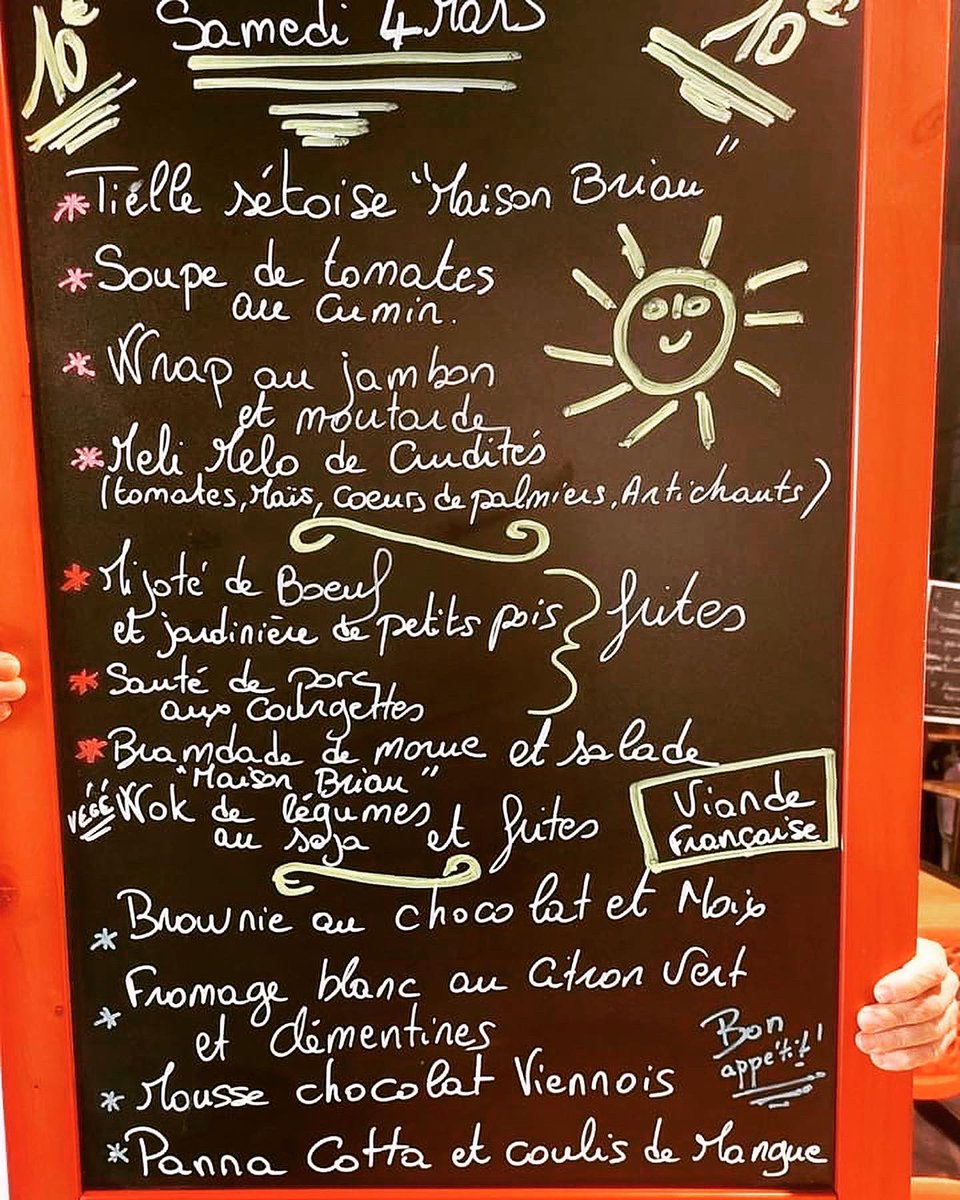 10€ Samedi 4 Mars 10€
* Tielle sétoise "Maison Briau"
* Soupe de tomates
au Cumin.
* Wrap au jambon
et moutarde
* Meli Melo de Crudités
(tomates, Maïs, Coeurs de palmiers, Artichauts)
* Mijoté de Boeuf
et jardinière de petits pois } frites
* Sauté de porc
aux Courgettes
* Bramdade de morue et salade
"Maison Briau"
VÉGÉ Wok de légumes et frites
au soja
Viande
Française
* Brownie au chocolat et Noix
* Fromage blanc au Citron Vert
et clémentines
Bon
appétit!
* Mousse chocolat Viennois
* Panna Cotta et coulis de Mangue